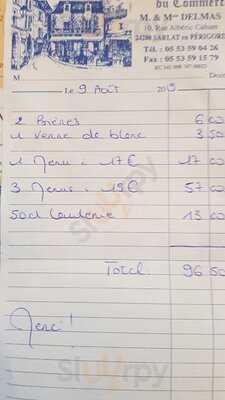 du Commerce
M. & Mme DELMAS
10, Rue Albéric Cahuet
24200 SARLAT en PÉRIGORD
Tél. : 05 53 59 04 26
Fax : 05 53 59 15 79
M
Le 9 Août 2015
2 Bières 6 00
1 verre de blanc 3 50
1 Menu à 17€ 17 00
3 Menus à 19€ 57 00
50cl 13 00
Total. 96 50
Merci !
Sluurpy